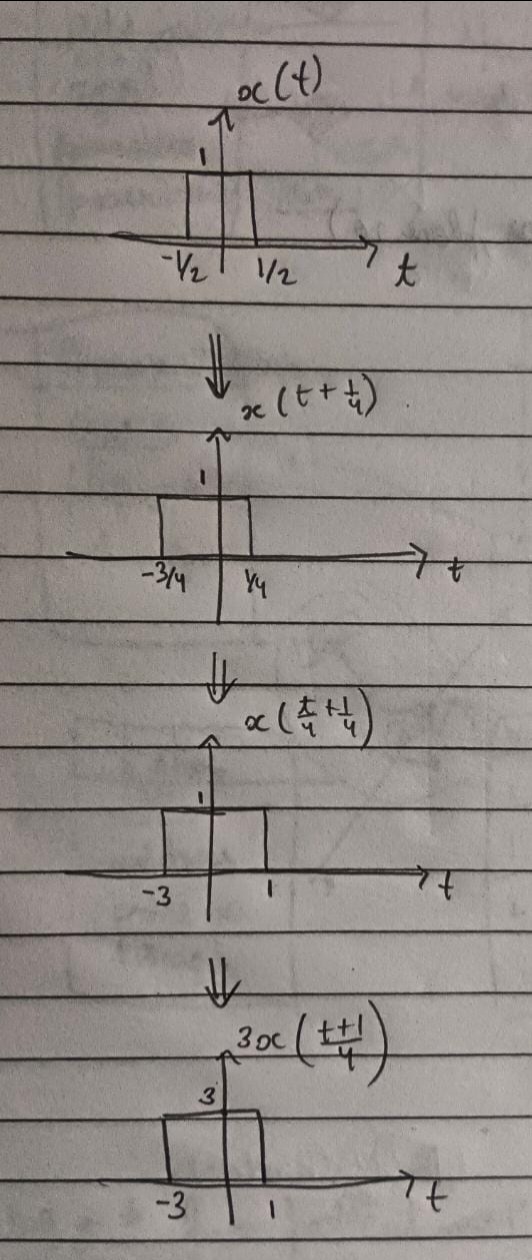 x(t)
1
-1/2 1/2 t
x(t + 1/4)
1
-3/4 1/4 t
x(t/4 + 1/4)
1
-3 1 t
3x((t+1)/4)
3
-3 1 t